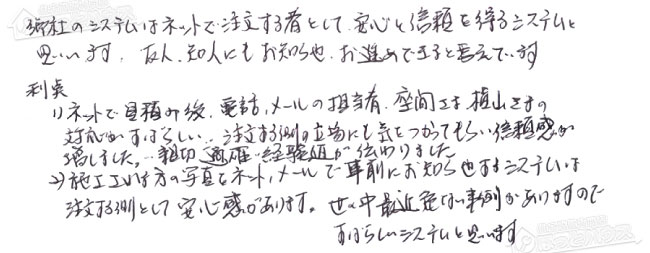 御社のシステムはネットで注文する者として、安心と信頼を得るシステムと
思います。友人、知人にもお知らせ、お進めできると言えています
利点
1)ネットで見積み後、電話、メールの担当者、座間さま、植山さまの
対応がすばらしい、注文する側の立場にも気をつかってもらい信頼感が
増しました。親切 適確 経験値が伝わりました
2)施工エいは方の写真をネット、メールで事前にお知らせするシステムは
注文する側として安心感があります。世の中最近危ない事例がありますので
すばらしいシステムと思います